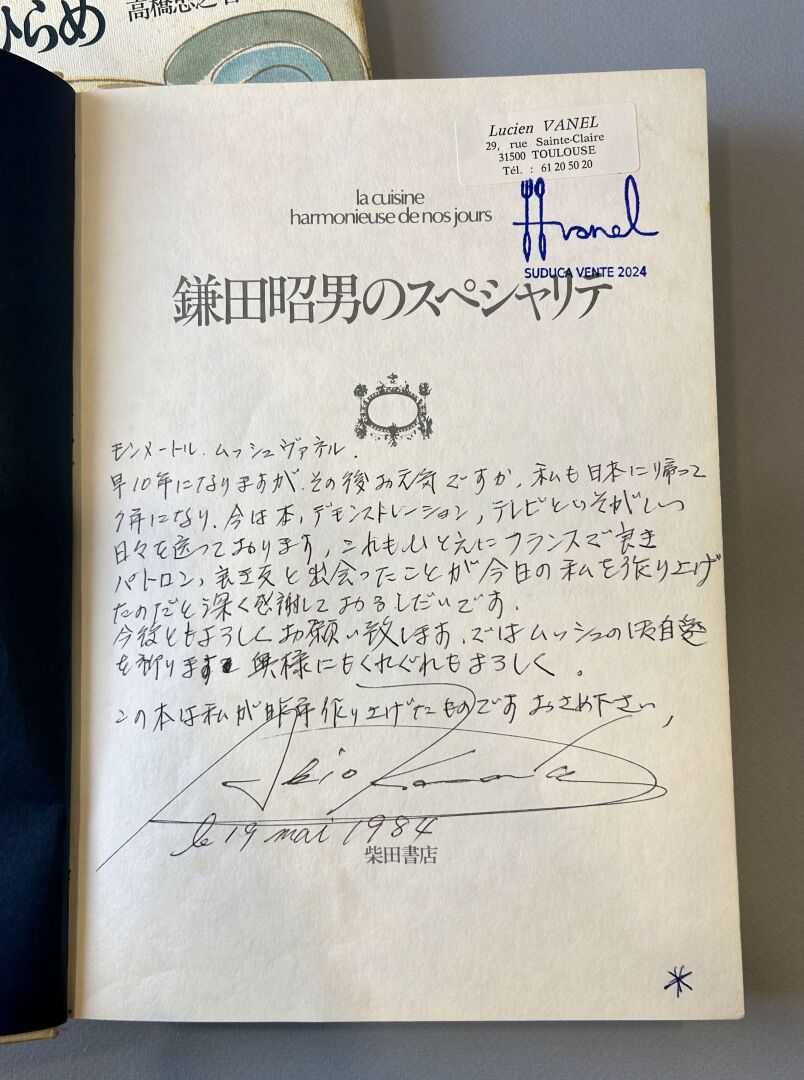 ひらめ
高橋忠之 著
Lucien VANEL
29, rue Sainte-Claire
31500 TOULOUSE
Tél. : 61 20 50 20
la cuisine
harmonieuse de nos jours
vanel
SUDUCA VENTE 2024
鎌田昭男のスペシャリテ
モンメートル.ムッシュヴァネル.
早10年になりますが.その後お元気ですか.私も日本に帰って
7年になり.今は本,デモンストレーション,テレビといそがしい
日々を送っております,これもひとえにフランスで良き
パトロン,良き友と出会ったことが今日の私を作り上げ
たのだと深く感謝しておるしだいです.
今後ともよろしくお願い致します.ではムッシュのご自愛
を祈ります 奥様にもくれぐれもよろしく。
この本は私が昨年作り上げたものです おさめ下さい,
Akio Kamata
le 19 mai 1984
柴田書店